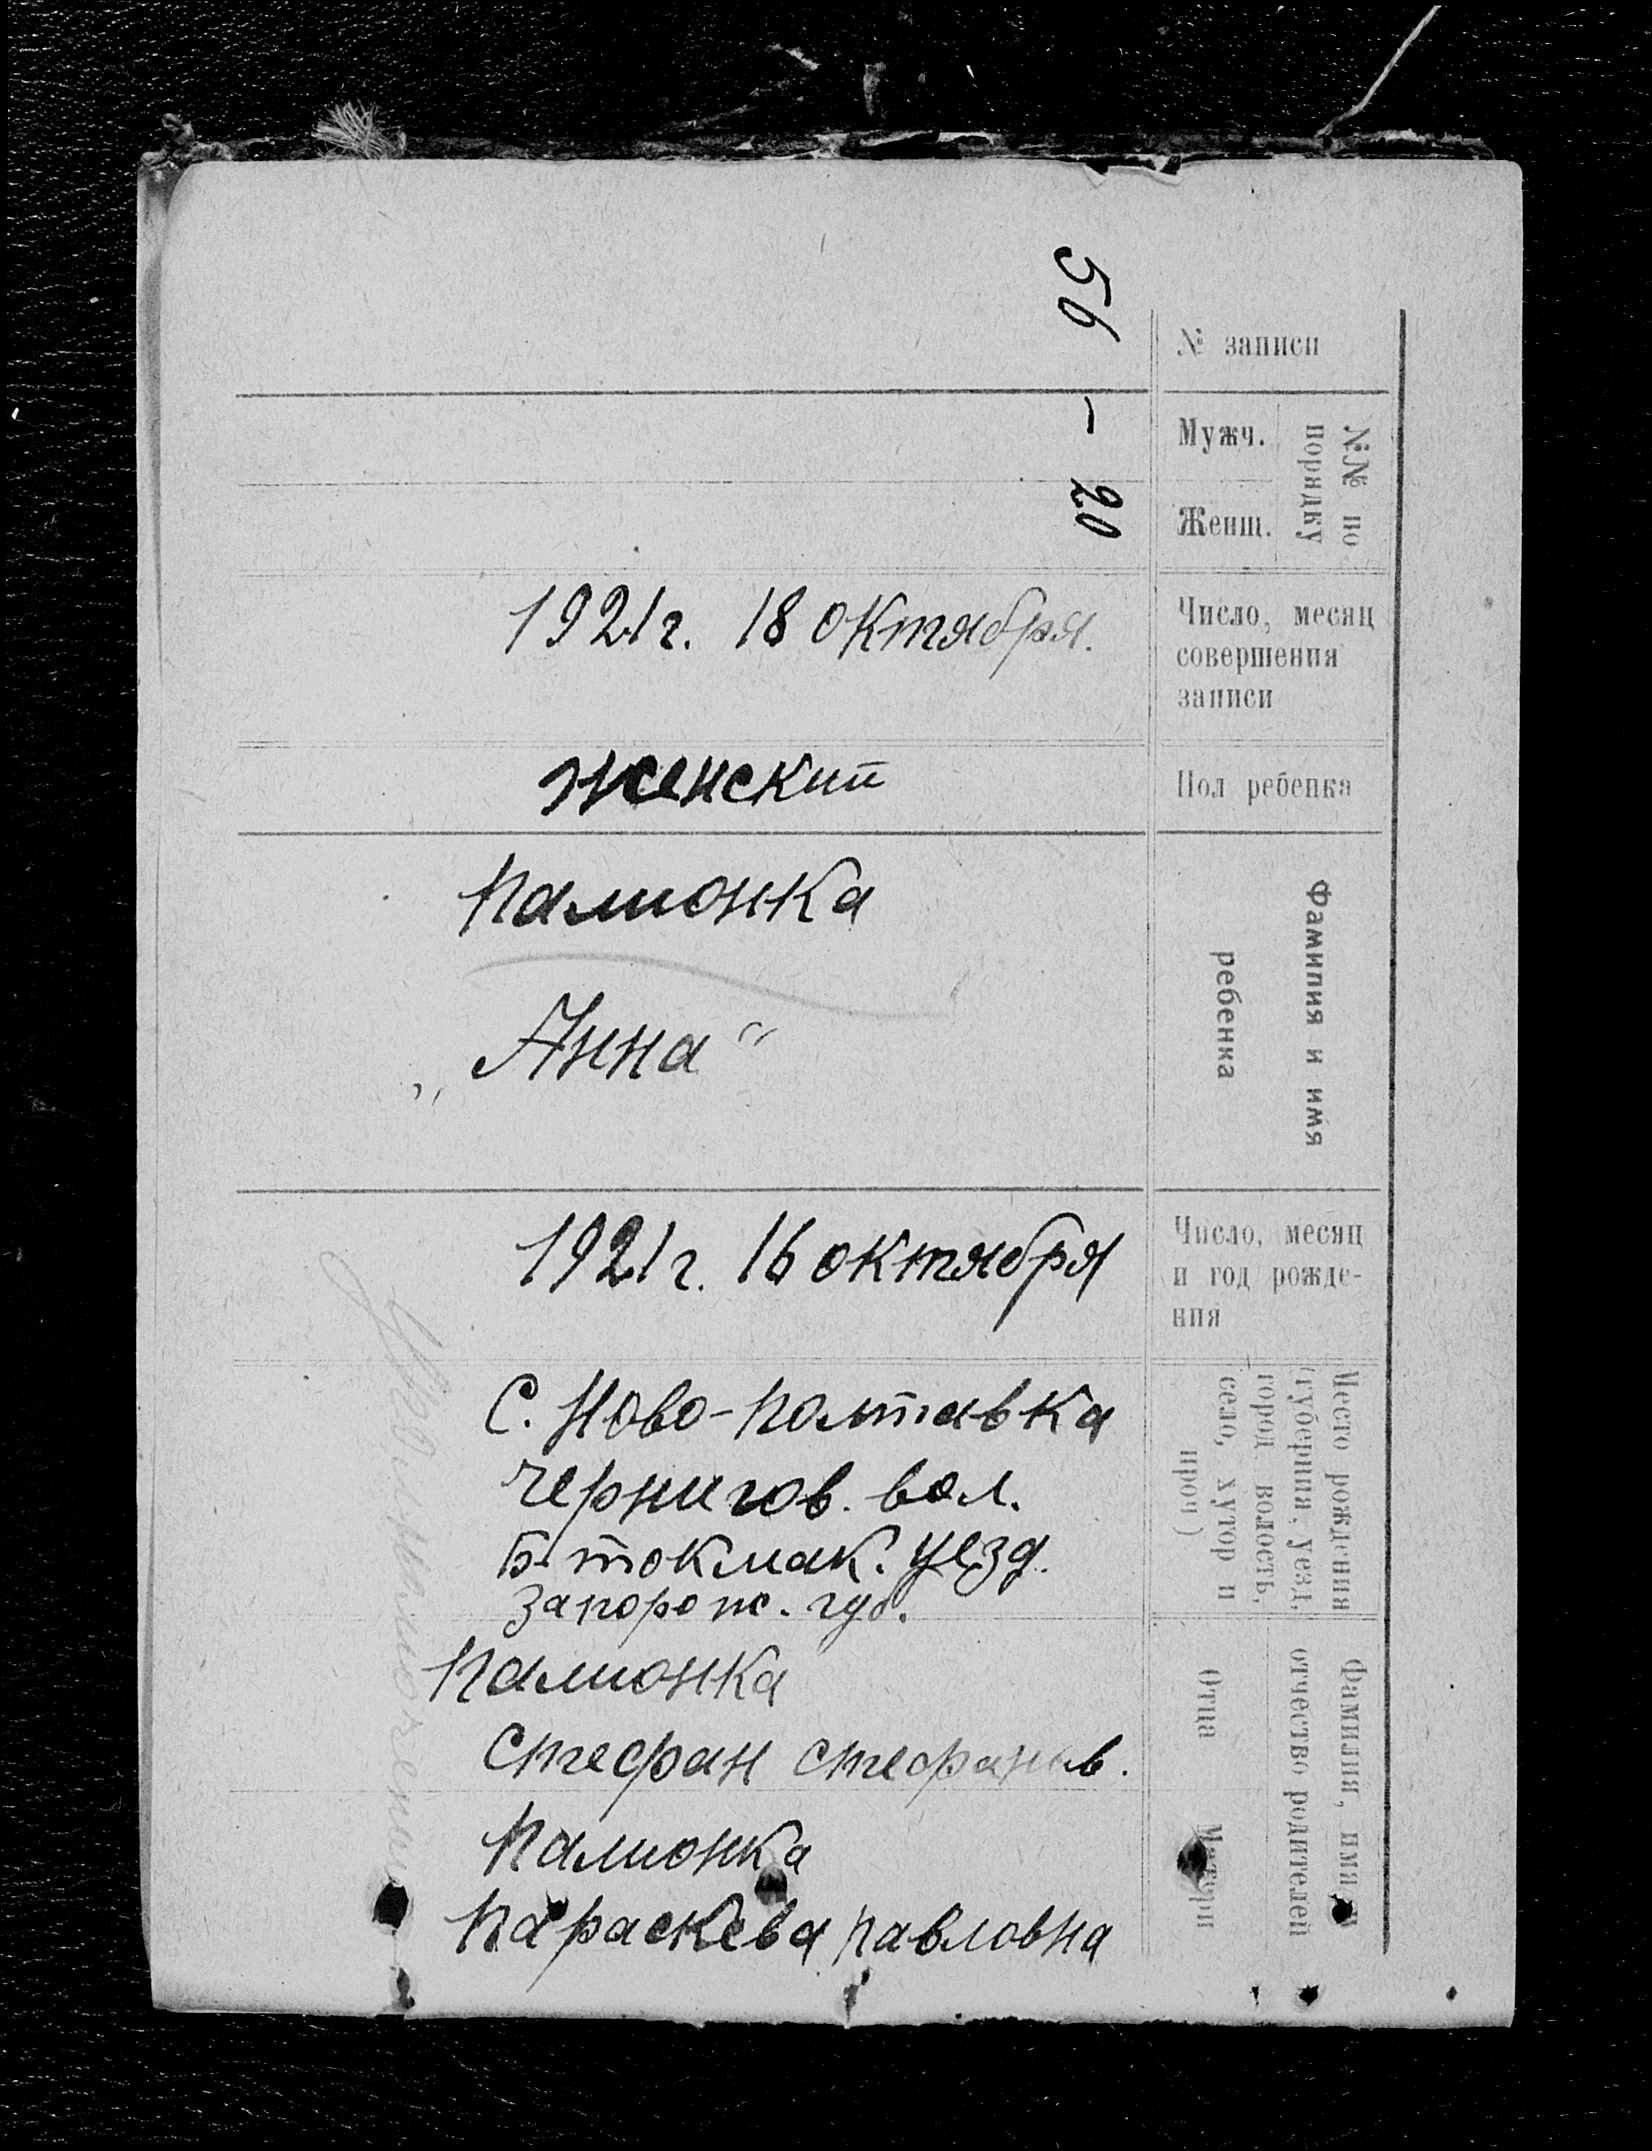 № записи
56
№№ по
порядку
Мужч.
—
Женщ.
20
Число, месяц
совершения
записи
1921 г. 18 октября.
Пол ребенка
женский
Фамилия и имя
ребенка
Палионка
„Анна“
Число, месяц
и год рожде-
ния
1921 г. 16 октября
Место рождения
(губерния, уезд,
город, волость,
село, хутор и
проч)
С. Ново-Полтавка
Чернигов. вол.
Б-токмак. уезд.
Запорож. губ.
Фамилия, имя и
отчество родителей
Отца
Палионка
Стефан Стефанов.
Матери
Палионка
Параскева Павловна